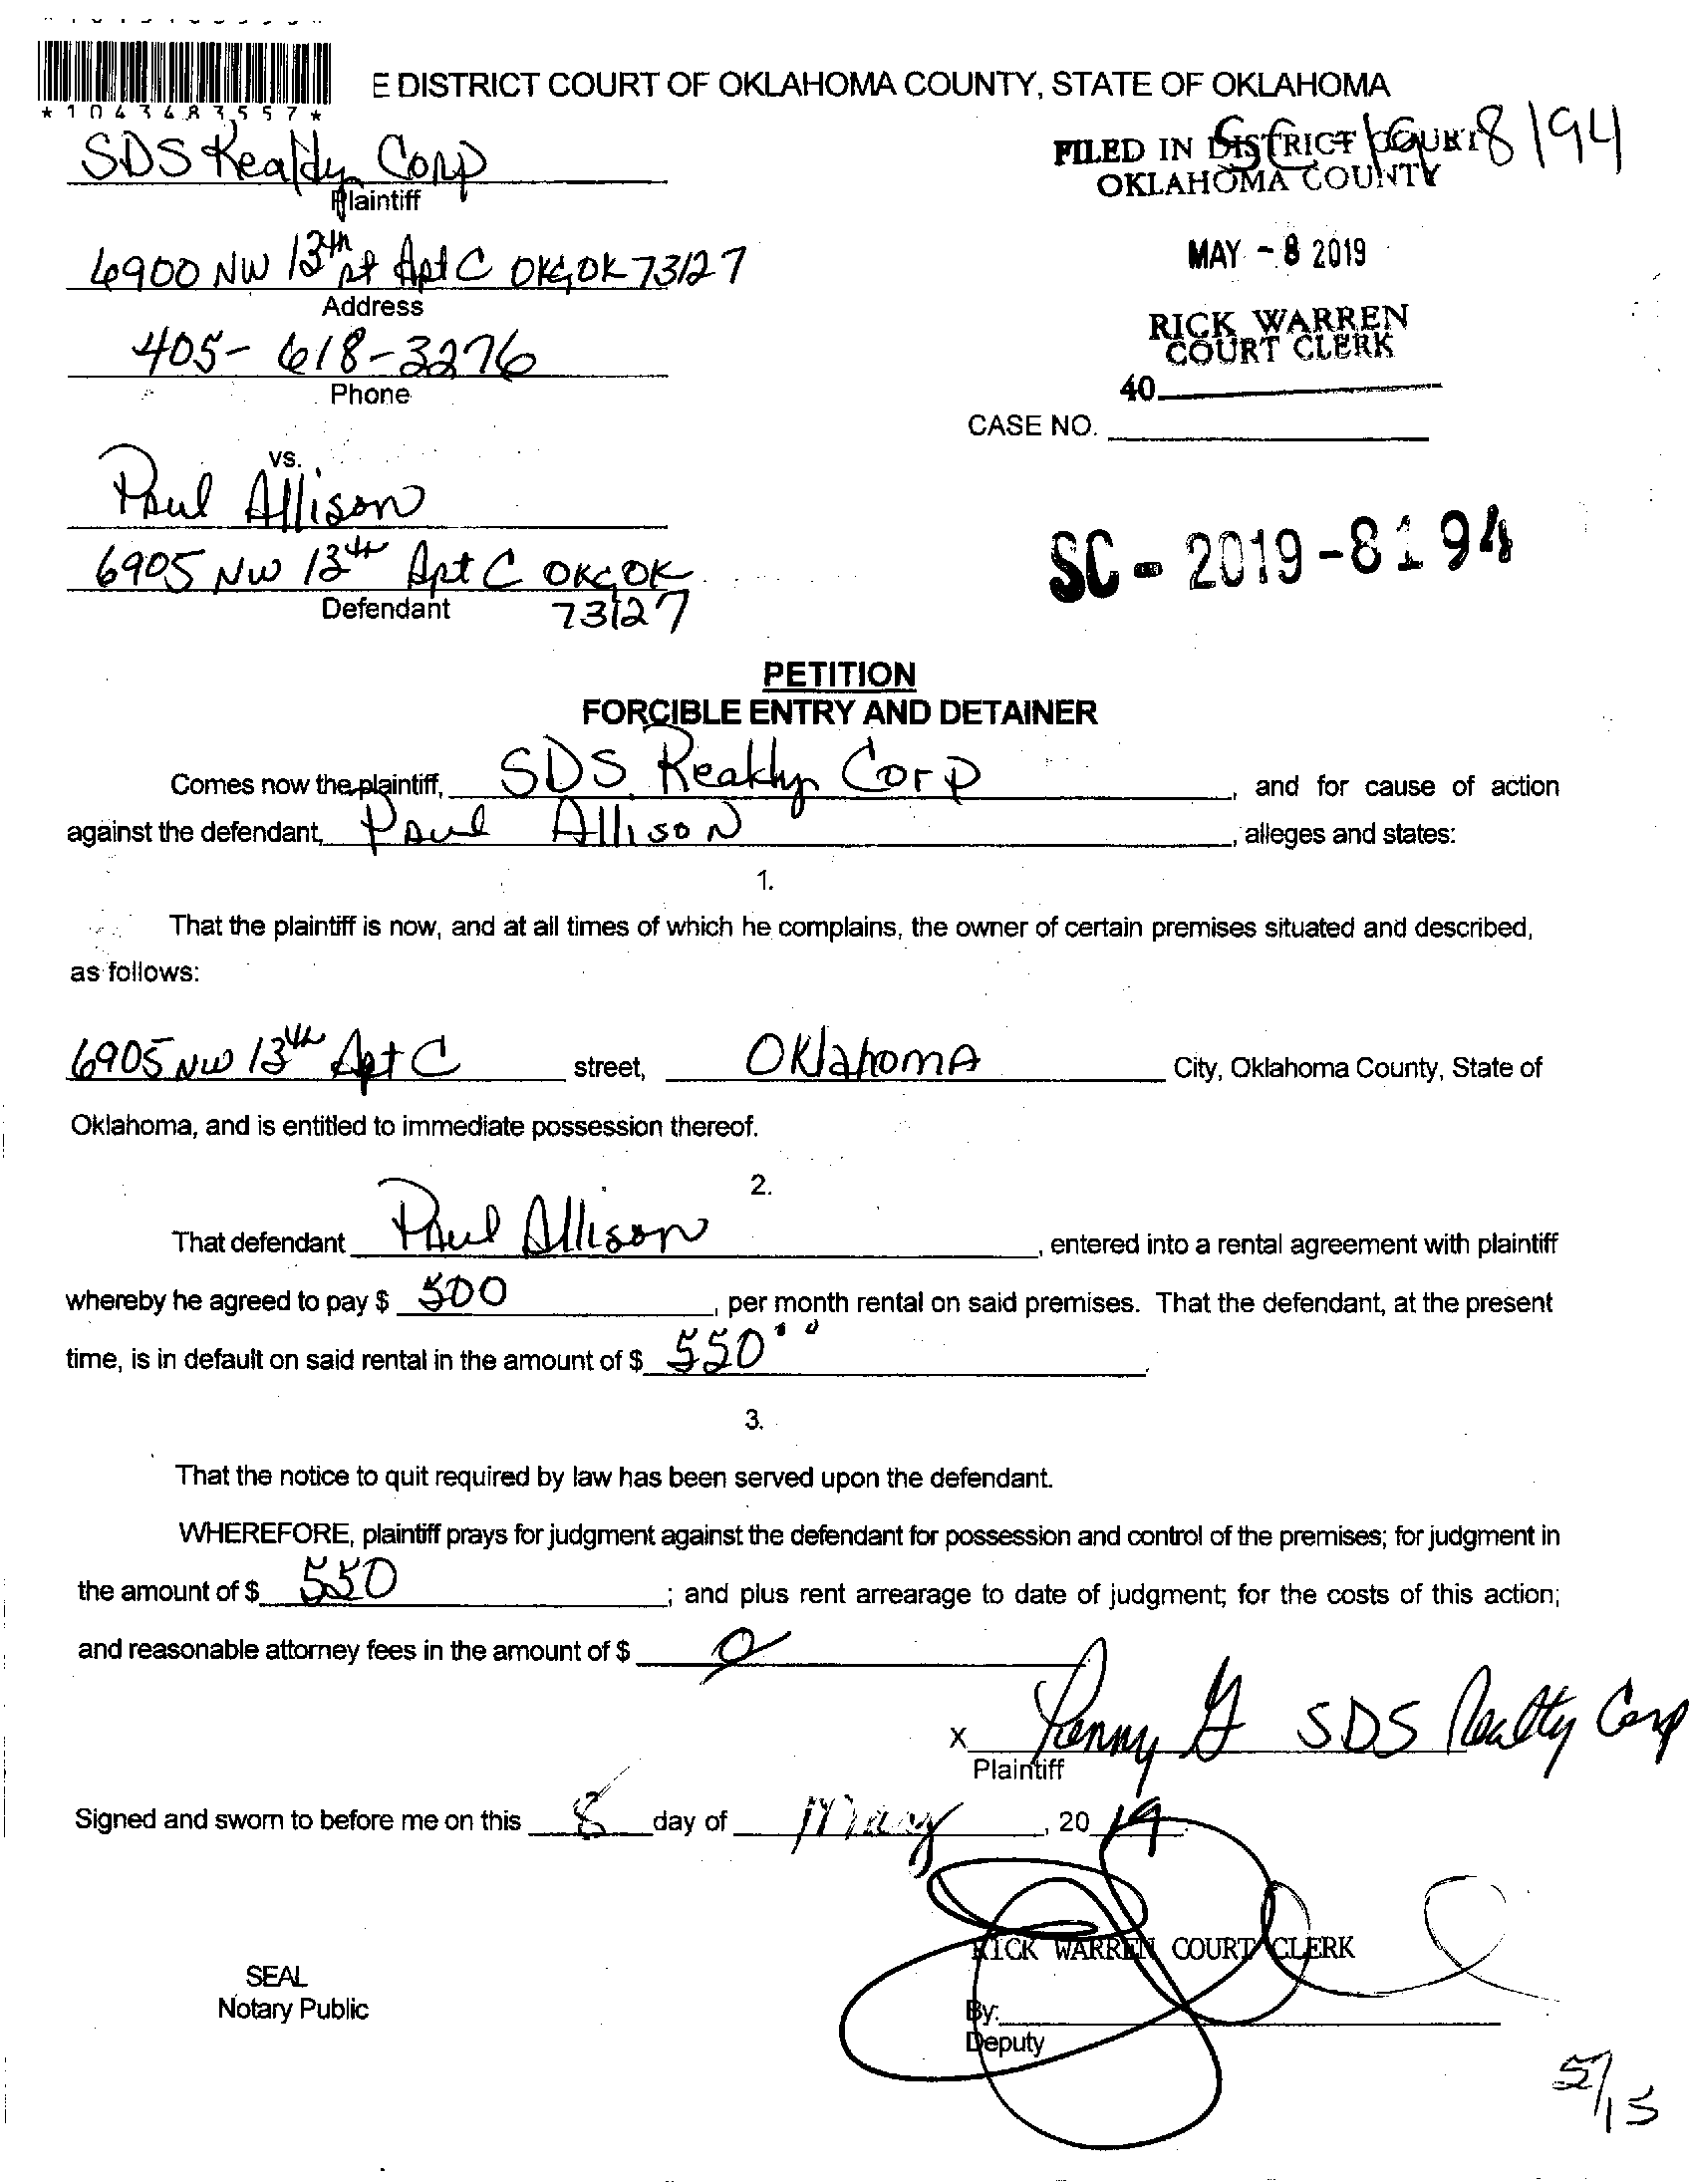 *1043483557*
E DISTRICT COURT OF OKLAHOMA COUNTY, STATE OF OKLAHOMA
SDS Realty Corp
Plaintiff
SC 19 8194
FILED IN DISTRICT COURT
OKLAHOMA COUNTY
6900 NW 13th Apt C OKC, OK 73127
Address
MAY - 8 2019
405-618-3276
Phone
RICK WARREN
COURT CLERK
40
CASE NO.
vs.
Paul Allison
6905 NW 13th Apt C OKC OK
73127
Defendant
SC - 2019 - 8194
PETITION
FORCIBLE ENTRY AND DETAINER
Comes now the plaintiff, SDS Realty Corp, and for cause of action
against the defendant, Paul Allison, alleges and states:
1.
That the plaintiff is now, and at all times of which he complains, the owner of certain premises situated and described,
as follows:
6905 NW 13th Apt C street, Oklahoma City, Oklahoma County, State of
Oklahoma, and is entitled to immediate possession thereof.
2.
That defendant Paul Allison, entered into a rental agreement with plaintiff
whereby he agreed to pay $ 500, per month rental on said premises. That the defendant, at the present
time, is in default on said rental in the amount of $ 550.00.
3.
That the notice to quit required by law has been served upon the defendant.
WHEREFORE, plaintiff prays for judgment against the defendant for possession and control of the premises; for judgment in
the amount of $ 550; and plus rent arrearage to date of judgment; for the costs of this action;
and reasonable attorney fees in the amount of $ 0
x Penny G SDS Realty Corp
Plaintiff
Signed and sworn to before me on this 8 day of May, 2019
RICK WARREN COURT CLERK
SEAL
Notary Public
By:
Deputy
5/15